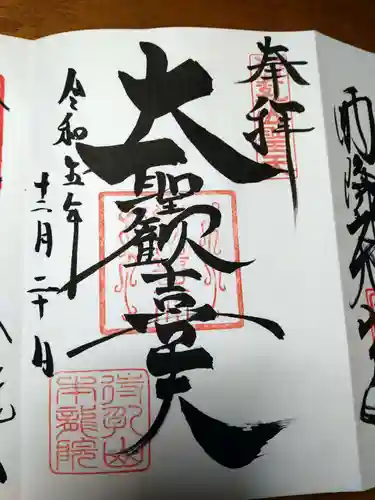 奉拝
大聖歓喜天
令和五年
十二月二十日
待乳山
本龍院